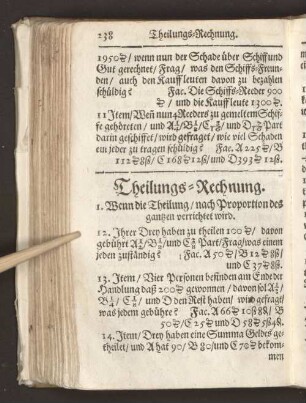 238 Theilungs-Rechnung.
1950 ₰/ wenn nun der Schade über Schiff und
Gut gerechnet/ Frag/ was den Schiffs-Freun-
den/ auch den Kauffleuten davon zu bezahlen
schüldig? Fac. Die Schiffs-Reeder 900
₰/ und die Kauffleute 1300 ₰.
11 Item/ Weñ nun 4 Reeders zu gemeltem Schif-
fe gehöreten/ und A B C und D Part
darin geschiffet/ wird gefraget/ wie viel Schaden
ein jeder zu tragen schüldig? Fac. A 225 ₰/ B
112 ₰ 8ß/ C 168 ₰ 12ß/ und D 393 ₰ 12ß.
Theilungs-Rechnung.
1. Wenn die Theilung/ nach Proportion des
gantzen verrichtet wird.
12. Ihrer Drey haben zu theilen 100 ₰/ davon
gebührt A B und C Part/ Frag/ was einem
jeden zuständig? Fac. A 50 ₰/ B 12 ₰ 8ß/
und C 37 ₰ 8ß.
13. Item/ Vier Personen befinden am Ende der
Handlung daß 200 ₰ gewonnen/ davon sol A
B C und D den Rest haben/ wird gefragt/
was jedem gebühre? Fac. A 66 ₰ 10ß 8₰/ B
50 ₰/ C 25 ₰ und D 58 ₰ 5ß 4₰.
14. Item/ Drey haben eine Summa Geldes ge-
theilet/ und A hat 90/ B 80/ und C 70 ₰ bekom-
men